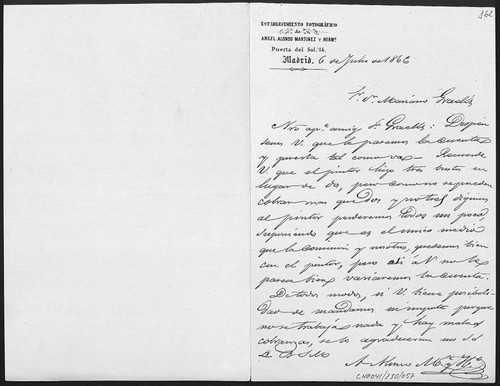 162
ESTABLECIMIENTO FOTOGRÁFICO
de
ANGEL ALONSO MARTINEZ Y HERMº
Puerta del Sol, 14.
Madrid. 6 de Julio de 1866
Sr. Dn. Mariano Graells
Nro apreº amigo Sr. Graells: Dispen
senos V. que le pasemos la cuenta
y puesta tal como va. Recuerde
V. que el pintor hizo tres
en
lugar de dos, pero como no se pueden
cobrar mas que dos y
al pintor perderemos todos un poco,
suponiendo que es el único medio
que la comision y nosotros, quedemos bien
con el pintor, pero si á V. no le
parece bien variaremos la cuenta.
De todos modos, si V. tiene posibili-
dad de mandarnos
porque
no se trabaja nada y hay malas
cobranzas, se lo agradeceran sus S.S.
Q. B. S. M.
A. Alonso Mz y Hº
CN0041/730/057